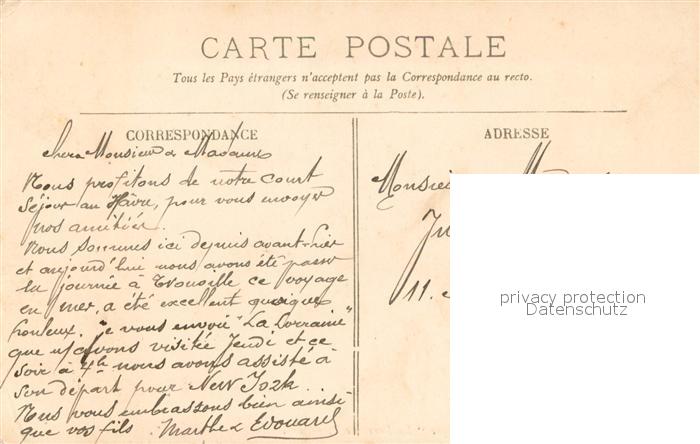 CARTE POSTALE
Tous les Pays étrangers n'acceptent pas la Correspondance au recto.
(Se renseigner à la Poste).
CORRESPONDANCE
ADRESSE
Chers Monsieur & Madame
Nous profitons de notre court
séjour au Hâvre, pour vous envoyer
nos amitiés.
Nous sommes ici depuis avant-hier
et aujourd'hui nous avons été passer
la journée à Trouville ce voyage
en mer, a été excellent quoique
houleux. Je vous envoie "La Lorraine"
que nous avons visitée Jeudi et ce
soir à 4h nous avons assisté à
son départ pour New York.
Nous vous embrassons bien ainsi
que vos fils. Marthe & Edouard
Monsieur
11.
privacy protection
Datenschutz